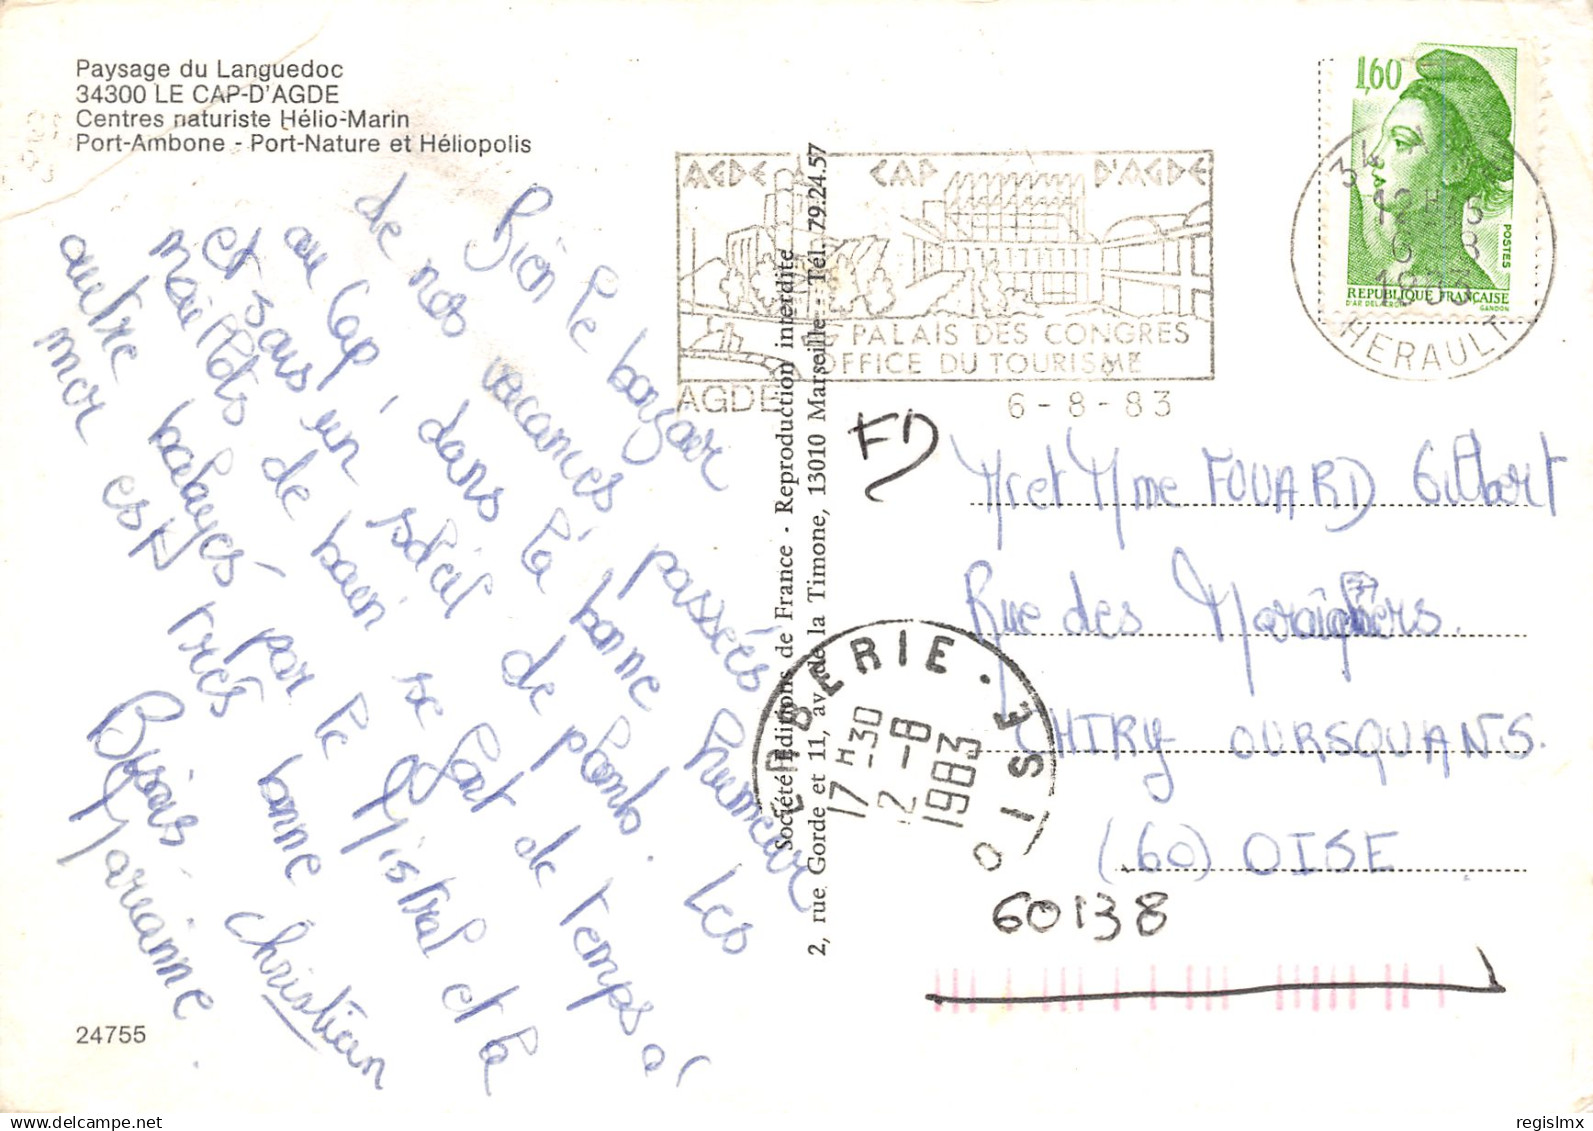 Paysage du Languedoc
34300 LE CAP-D'AGDE
Centres naturiste Hélio-Marin
Port-Ambone - Port-Nature et Héliopolis
Bien le bonjour
de nos vacances passées
au Cap, dans la bonne humeur
et sous un soleil de plomb. Les
maillots de bain se font de temps à
autre balayés par le Mistral et la
mer est très bonne
Bises
Marianne
Christian
24755
Société Editions de France - Reproduction interdite
2, rue Gorde et 11, av. de la Timone, 13010 Marseille - Tél. 79.24.57
AGDE CAP D'AGDE
PALAIS DES CONGRES
OFFICE DU TOURISME
AGDE 6-8-83
1,60
POSTES
REPUBLIQUE FRANÇAISE
D'AP. DELACROIX GANDON
HERAULT
FD
Mr et Mme FOUARD Gilbert
Rue des Maraîchers.
CHIRY OURSQUANS.
(60) OISE
60138
RIBERIE · OISE
17H30
-8
1983
regislmx